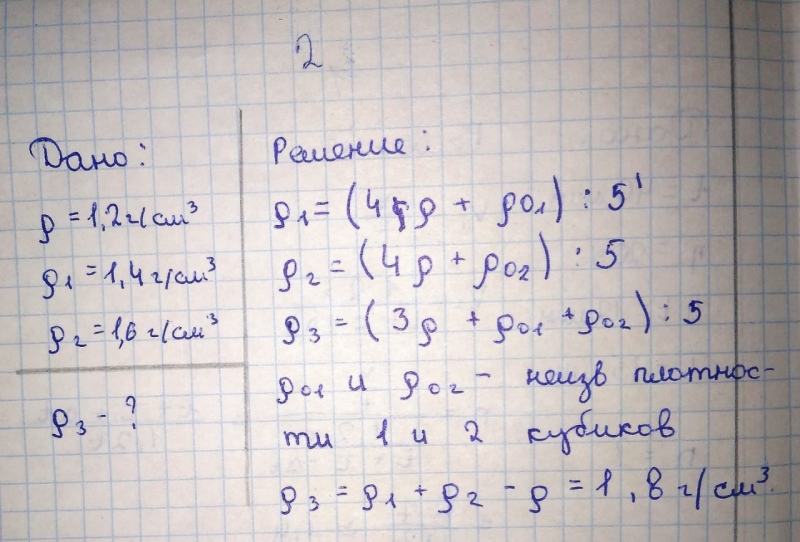 2
Дано:
ρ = 1,2 г/см³
ρ₁ = 1,4 г/см³
ρ₂ = 1,6 г/см³
ρ₃ - ?
Решение:
ρ₁ = (4ρ + ρ₀₁) : 5
ρ₂ = (4ρ + ρ₀₂) : 5
ρ₃ = (3ρ + ρ₀₁ + ρ₀₂) : 5
ρ₀₁ и ρ₀₂ - неизв плотнос-
ти 1 и 2 кубиков
ρ₃ = ρ₁ + ρ₂ - ρ = 1,8 г/см³.